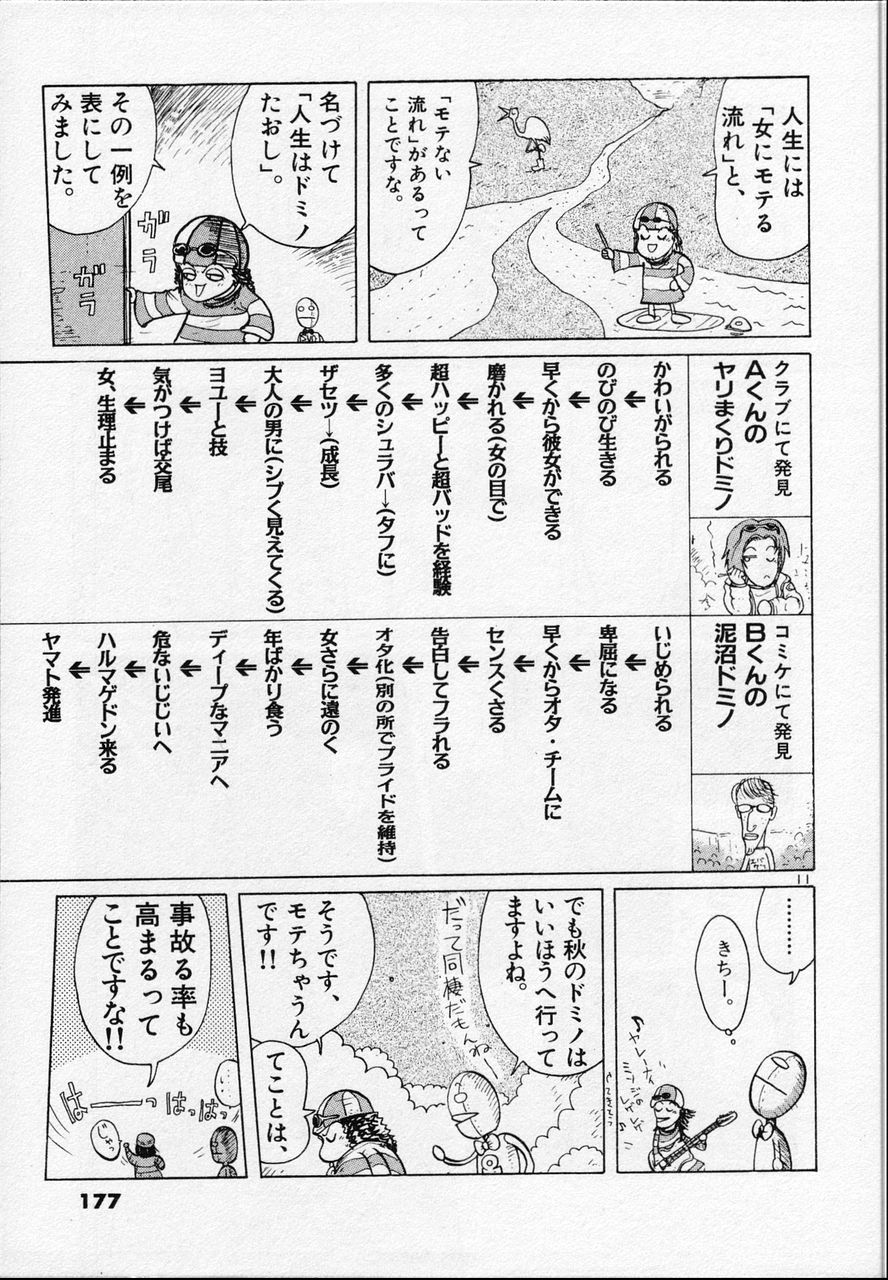 人生には
「女にモテる
流れ」と、
「モテない
流れ」があるって
ことですな。
名づけて
「人生はドミノ
たおし」。
その一例を
表にして
みました。
ガラ
ガラ
クラブにて発見
Aくんの
ヤリまくりドミノ
かわいがられる
←
のびのび生きる
←
早くから彼女ができる
←
磨かれる(女の目で)
←
超ハッピーと超バッドを経験
←
多くのシュラバ→(タフに)
←
ザセツ→(成長)
←
大人の男に(シブく見えてくる)
←
ヨユーと技
←
気がつけば交尾
←
女、生理止まる
コミケにて発見
Bくんの
泥沼ドミノ
いじめられる
←
卑屈になる
←
早くからオタ・チームに
←
センスくさる
←
告白してフラれる
←
オタ化(別の所でプライドを維持)
←
女さらに遠のく
←
年ばかり食う
←
ディープなマニアへ
←
危ないじじいへ
←
ハルマゲドン来る
←
ヤマト発進
11
………
きちー。
でも秋のドミノは
いいほうへ行って
ますよね。
だって同棲だもんねー
そうです、
モテちゃうん
です!!
てことは、
事故る率も
高まるって
ことですな!!
はーっはっはっ
177